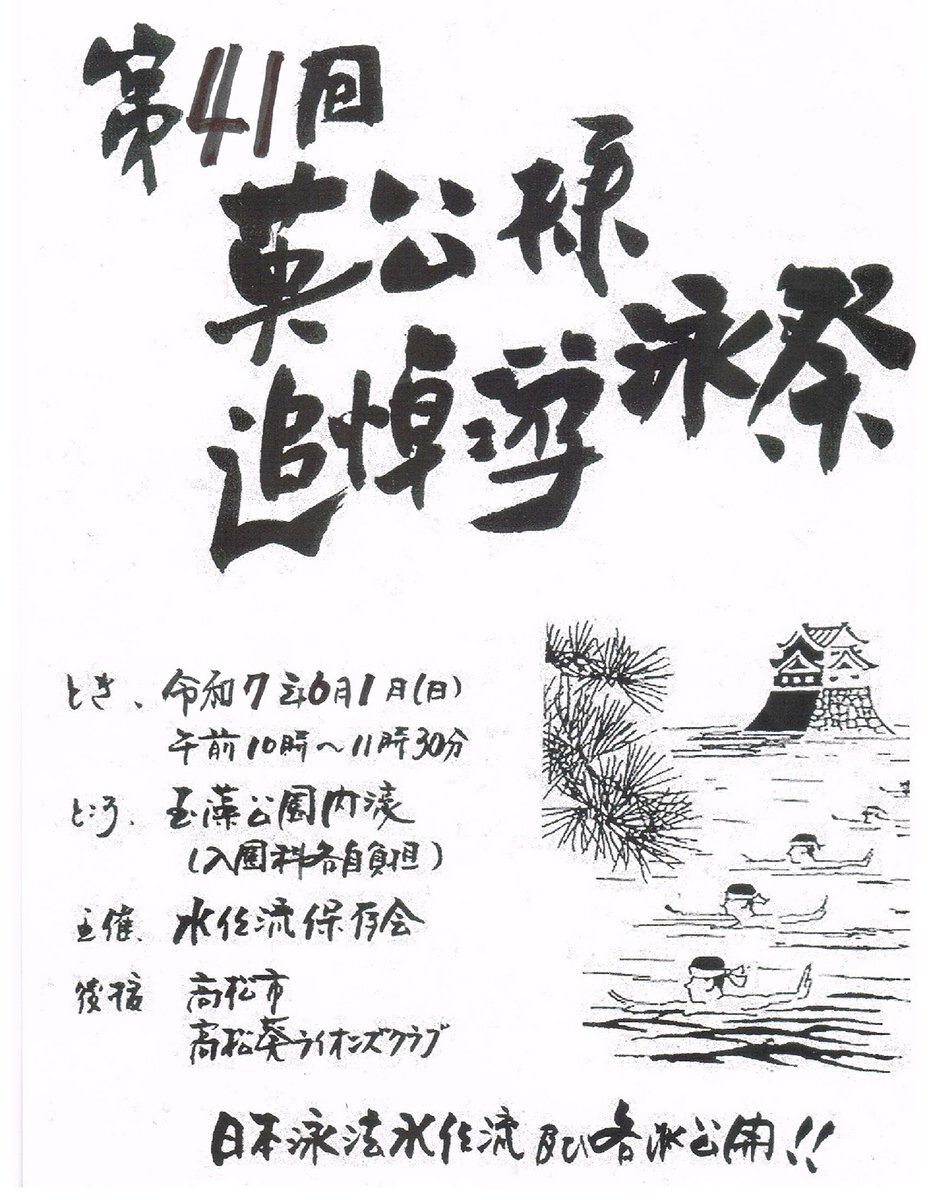 第41回
英公様
追悼游泳祭
とき、令和7年6月1日(日)
午前10時～11時30分
ところ、玉藻公園内濠
(入園料各自負担)
主催、水任流保存会
後援 高松市
高松葵ライオンズクラブ
日本泳法水任流及び各泳公開!!